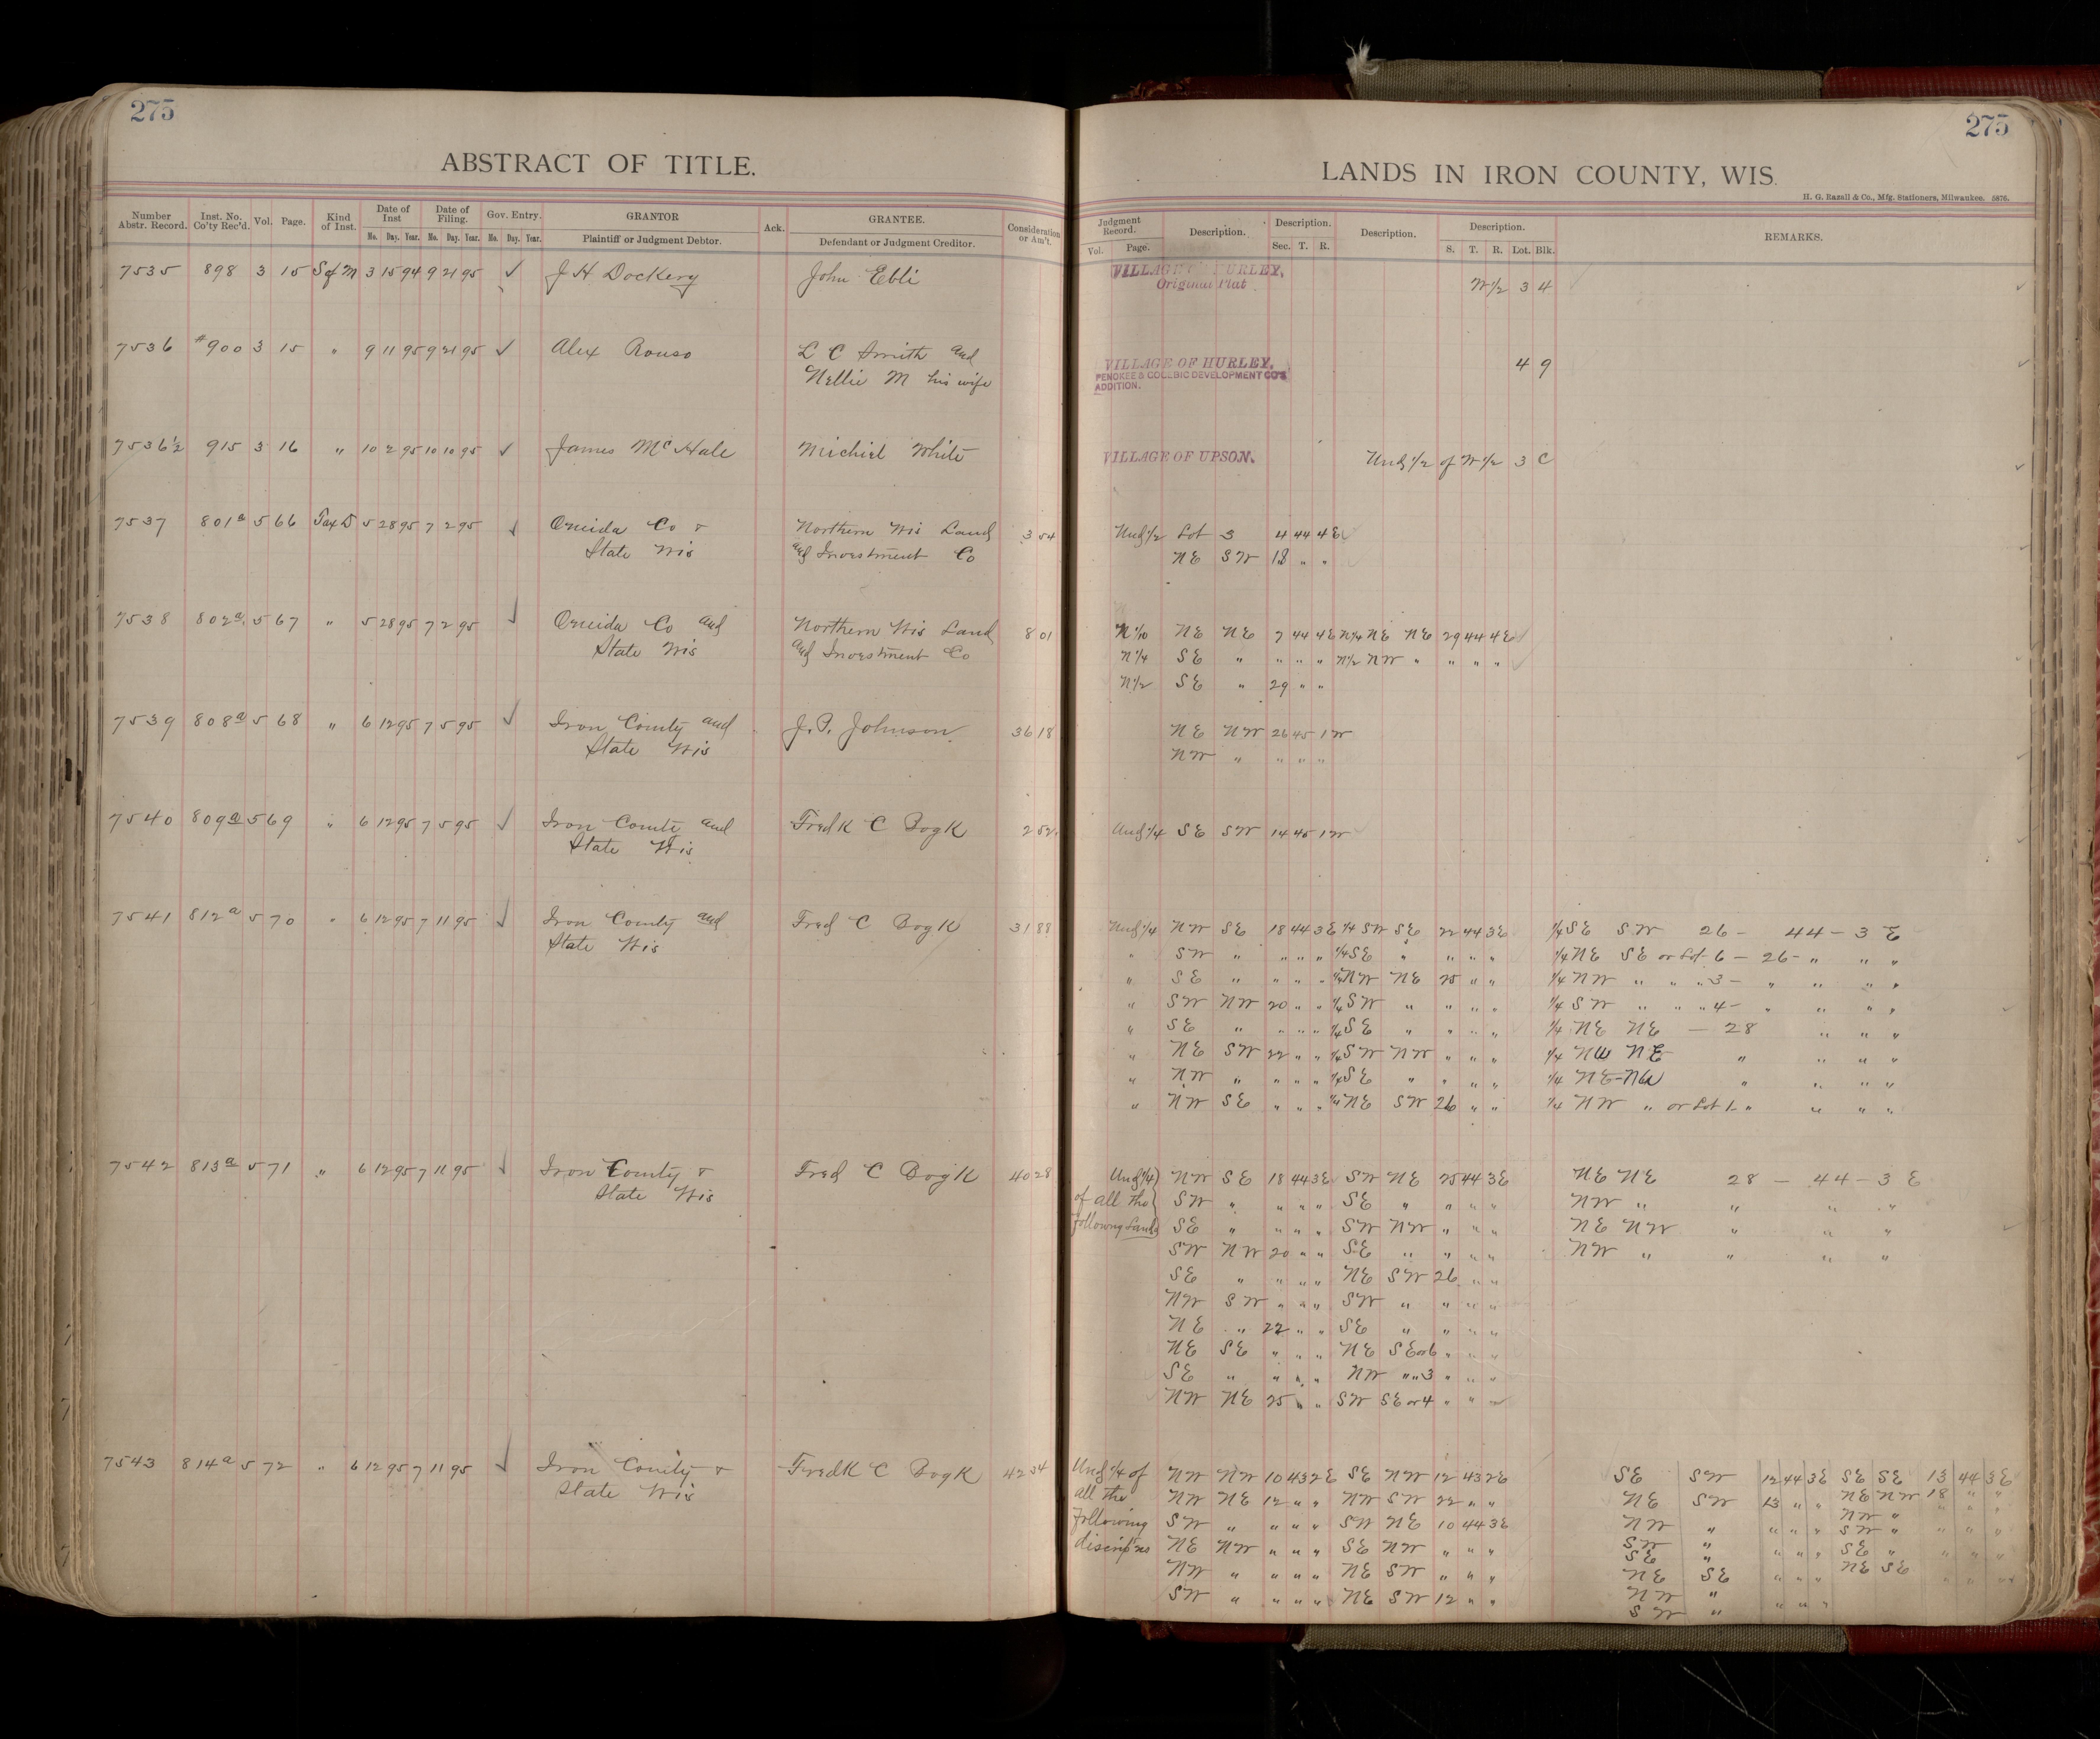 275
ABSTRACT OF TITLE.
Number Abstr. Record. Inst. No. Co'ty Rec'd. Vol. Page. Kind of Inst. Date of Inst Mo. Day. Year. Date of Filing. Mo. Day. Year. Gov. Entry. Mo. Day. Year. GRANTOR Plaintiff or Judgment Debtor. Ack. GRANTEE. Defendant or Judgment Creditor. Consideration or Am't.
7535 898 3 15 S of M 3 15 94 9 21 95 ✓ J H Dockery John Ebli
7536 #900 3 15 " 9 11 95 9 21 95 ✓ Alex Rouso L C Smith and
Nellie M his wife
7536½ 915 3 16 " 10 2 95 10 10 95 ✓ James McHale Michiel White
7537 801a 5 66 Tax D 5 28 95 7 2 95 ✓ Oneida Co & Northern Wis Land 3 54
State Wis and Investment Co
7538 802a 5 67 " 5 28 95 7 2 95 ✓ Oneida Co and Northern Wis Land 8 01
State Wis and Investment Co
7539 808a 5 68 " 6 12 95 7 5 95 ✓ Iron County and J. P. Johnson 36 18
State Wis
7540 809a 5 69 " 6 12 95 7 5 95 ✓ Iron County and Fredk C Bogk 2 52
State Wis
7541 812a 5 70 " 6 12 95 7 11 95 ✓ Iron County and Fred C Bogk 31 88
State Wis
7542 813a 5 71 " 6 12 95 7 11 95 ✓ Iron County & Fred C Bogk 40 28
State Wis
7543 814a 5 72 " 6 12 95 7 11 95 ✓ Iron County & Fredk C Bogk 42 34
State Wis
275
LANDS IN IRON COUNTY, WIS.
H. G. Razall & Co., Mfg. Stationers, Milwaukee. 5876.
Judgment Record. Vol. Page. Description. Description. Sec. T. R. Description. Description. S. T. R. Lot. Blk. REMARKS.
VILLAGE OF HURLEY,
Original Plat
W½ 3 4
VILLAGE OF HURLEY,
PENOKEE & GOGEBIC DEVELOPMENT CO'S
ADDITION.
4 9
VILLAGE OF UPSON. Und ½ of W½ 3 C
Und ½ Lot 3 4 44 4E
NE SW 18 " "
N 1/10 NE NE 7 44 4E N¼ NE NE 29 44 4E
N¼ SE " " " " N½ NW " " " "
N½ SE " 29 " "
NE NW 26 45 1W
NW " " " "
Und ¼ SE SW 14 45 1W
Und ¼ NW SE 18 44 3E ¼ SW SE 22 44 3E ¼ SE SW 26 - 44 - 3 E
" SW " " " " ¼ SE " " " " ¼ NE SE or Lot 6 - 26 - " " "
" SE " " " " ¼ NW NE 25 " " ¼ NW " " " 3 - " " " "
" SW NW 20 " " ¼ SW " " " " ¼ SW " " " 4 - " " " "
" SE " " " " ¼ SE " " " " ¼ NE NE - 28 " " "
" NE SW 22 " " ¼ SW NW " " " ¼ NW NE " " " "
" NW " " " " ¼ SE " " " " ¼ NE - NW " " " "
" NW SE " " " ¼ NE SW 26 " " ¼ NW " or Lot 1 - " " " "
Und ¼ NW SE 18 44 3E SW NE 25 44 3E NE NE 28 - 44 - 3 E
of all the SW " " " " SE " " " " NW " " " "
following Lands SE " " " " SW NW " " " NE NW " " "
SW NW 20 " " SE " " " " NW " " " "
SE " " " " NE SW 26 " "
NW SW " " " SW " " " "
NE " 22 " " SE " " " "
NE SE " " " NE SE or 6 " " "
SE " " " " NW " " 3 " " "
NW NE 25 " " SW SE or 4 " " "
Und ¼ of NW NW 10 43 2E SE NW 12 43 2E SE SW 12 44 3E SE SE 13 44 3E
all the NW NE 12 " " NW SW 22 " " NE SW 13 " " NE NW 18 " "
following SW " " " " SW NE 10 44 3E NW " " " " NW "
NE NW " " " SE NW " " " SW " " " " SW " " " "
NW " " " " NE SW " " " SE " SE " " " "
SW " " " " NE SW 12 " " NE SE " " " NE SE
NW "
SW " " " "